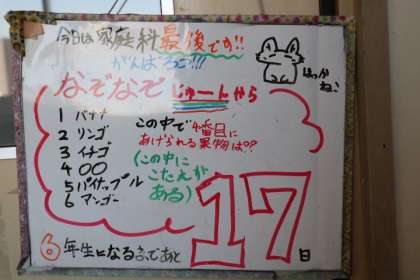 今日は家庭科最後です!!
がんばろう!!!
なぞなぞ じゅーんやら
ほっかねこ
1 バナナ
2 リンゴ
3 イチゴ
4 〇〇
5 パイナップル
6 マンゴー
この中で4番目に
あげられる果物は??
(この中に
こたえが
ある)
6年生になるまであと
17日